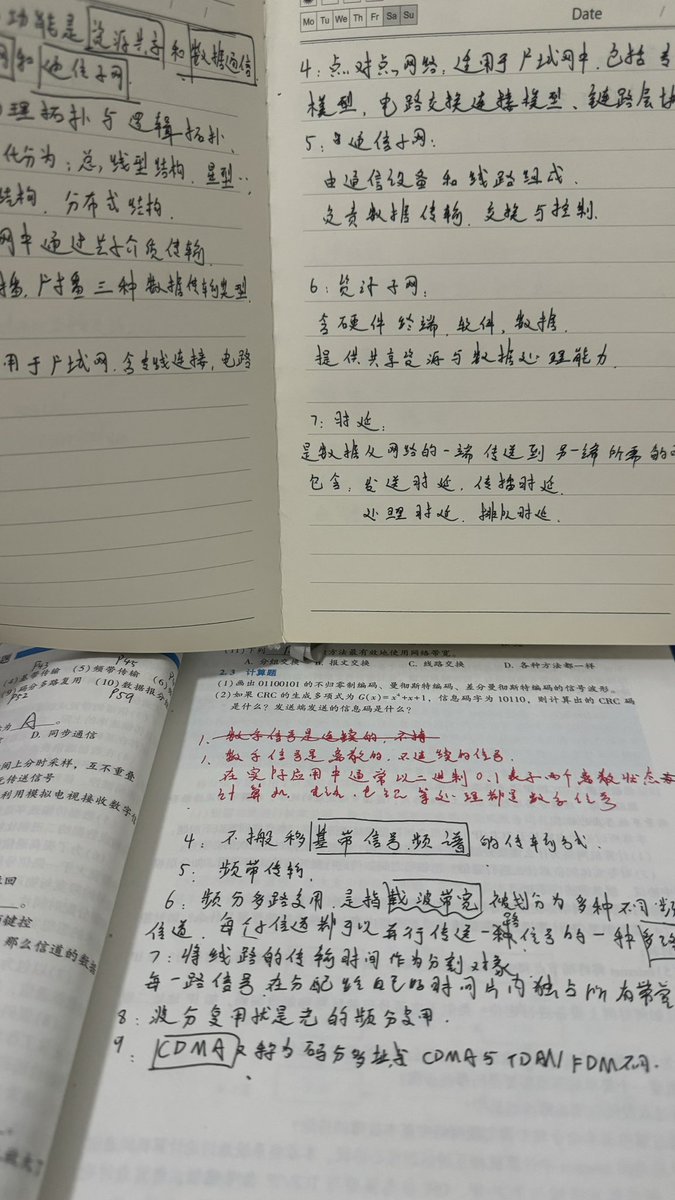 功能是资源共享和数据通信
网和通信子网
理拓扑与逻辑拓扑.
化分为:总线型结构,星型..
结构,分布式结构.
网中通过共享介质传输.
播,广播三种数据传输类型.
用于广域网.含专线连接,电路
Mo Tu We Th Fr Sa Su
Date / /
4:点对点网络,适用于广域网中.包括专
模型,电路交换连接模型、链路层协
5:通信子网:
由通信设备和线路组成.
负责数据传输,交换与控制.
6:资源子网:
含硬件终端,软件,数据.
提供共享资源与数据处理能力.
7:时延:
是数据从网路的一端传送到另一端所需的
包含:发送时延,传播时延.
处理时延,排队时延.
题
P43 P45
(4)基带传输 (5)频带传输 (6)
P52 P59
(9)码分多路复用 (10)数据报分
为 A 。
D. 同步通信
间上分时采样,互不重叠
传送信号
利用模拟电视接收数字
返回
。
频键控
那么信道的数
方法最有效地使用网络带宽。
A. 分组交换 B. 报文交换 C. 线路交换 D. 各种方法都一样
2.3 计算题
(1)画出01100101的不归零制编码、曼彻斯特编码、差分曼彻斯特编码的信号波形。
(2)如果CRC的生成多项式为G(x)=x⁴+x+1,信息码字为10110,则计算出的CRC码
是什么?发送端发送的信息码是什么?
1. 数字信号是连续的,不
1. 数字信号是离散的,不连续的信号.
在实际应用中通常以二进制0.1表示两个离散状态
计算机,等处理都是数字信号
4:不搬移基带信号频谱的传输方式.
5:频带传输.
6:频分多路复用,是指载波带宽被划分为多种不同频
信道,每个信道都可以并行传送一路信号的一种多
7:将线路的传输时间作为分割对象
每一路信号在分配给自己的时间片内独占所有带宽
8:波分复用就是光的频分复用.
9:CDMA又称为码分多址 CDMA与TDM/FDM不同.